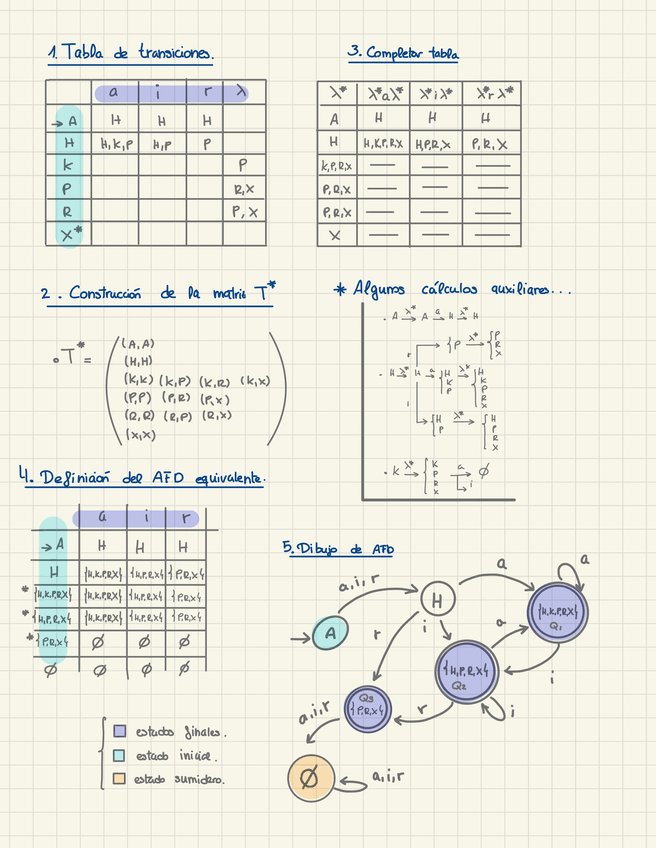 1. Tabla de transiciones.
a i r λ
→ A H H H
H H,K,P H,P P
K P
P R,X
R P,X
X*
3. Completar tabla
λ* λ*aλ* λ*iλ* λ*rλ*
A H H H
H H,K,P,R,X H,P,R,X P,R,X
K,P,R,X — — —
P,R,X — — —
P,R,X — — —
X — — —
2. Construcción de la matriz T*
T* =
(A,A)
(H,H)
(K,K) (K,P) (K,R) (K,X)
(P,P) (P,R) (P,X)
(R,R) (R,P) (R,X)
(X,X)
* Algunos cálculos auxiliares...
· A λ* → A a → H λ* → H
r → {P λ* → {P R X
· H λ* → H a → {H K P λ* → {H K P R X
i → {H P λ* → {H P R X
· K λ* → {K P R X a → ∅
i
4. Definición del AFD equivalente.
a i r
→ A H H H
H {H,K,P,R,X} {H,P,R,X} {P,R,X}
* {H,K,P,R,X} {H,K,P,R,X} {H,P,R,X} {P,R,X}
* {H,P,R,X} {H,K,P,R,X} {H,P,R,X} {P,R,X}
* {P,R,X} ∅ ∅ ∅
∅ ∅ ∅ ∅
5. Dibujo de AFD
a
a
a,i,r
H
{H,K,P,R,X}
Q1
A
r
i
a
{H,P,R,X}
Q2
i
Q3
{P,R,X}
r
i
a,i,r
∅
a,i,r
estados finales.
estado inicial.
estado sumidero.